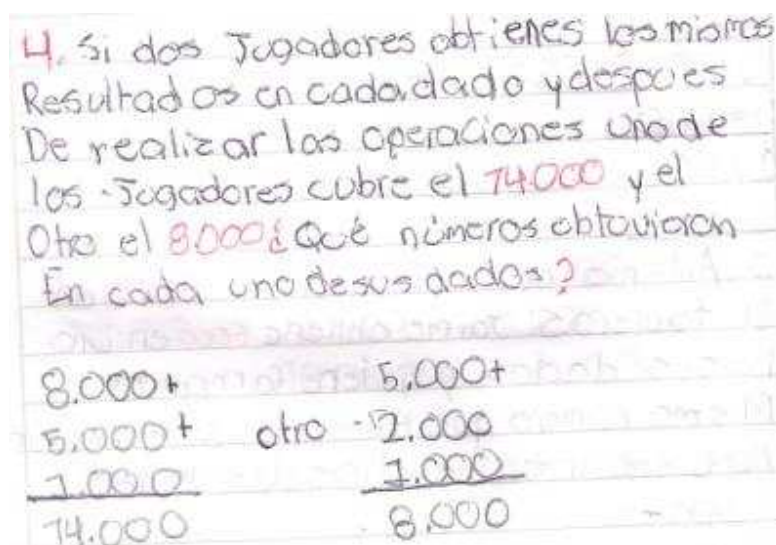 4. Si dos Jugadores obtienes los mismos
Resultados en cada dado y despues
De realizar las operaciones uno de
los Jugadores cubre el 14.000 y el
Otro el 8.000 ¿ Qué números obtuvieron
En cada uno de sus dados?
8.000+ 5.000+
5.000+ otro 2.000
1.000 1.000
14.000 8.000